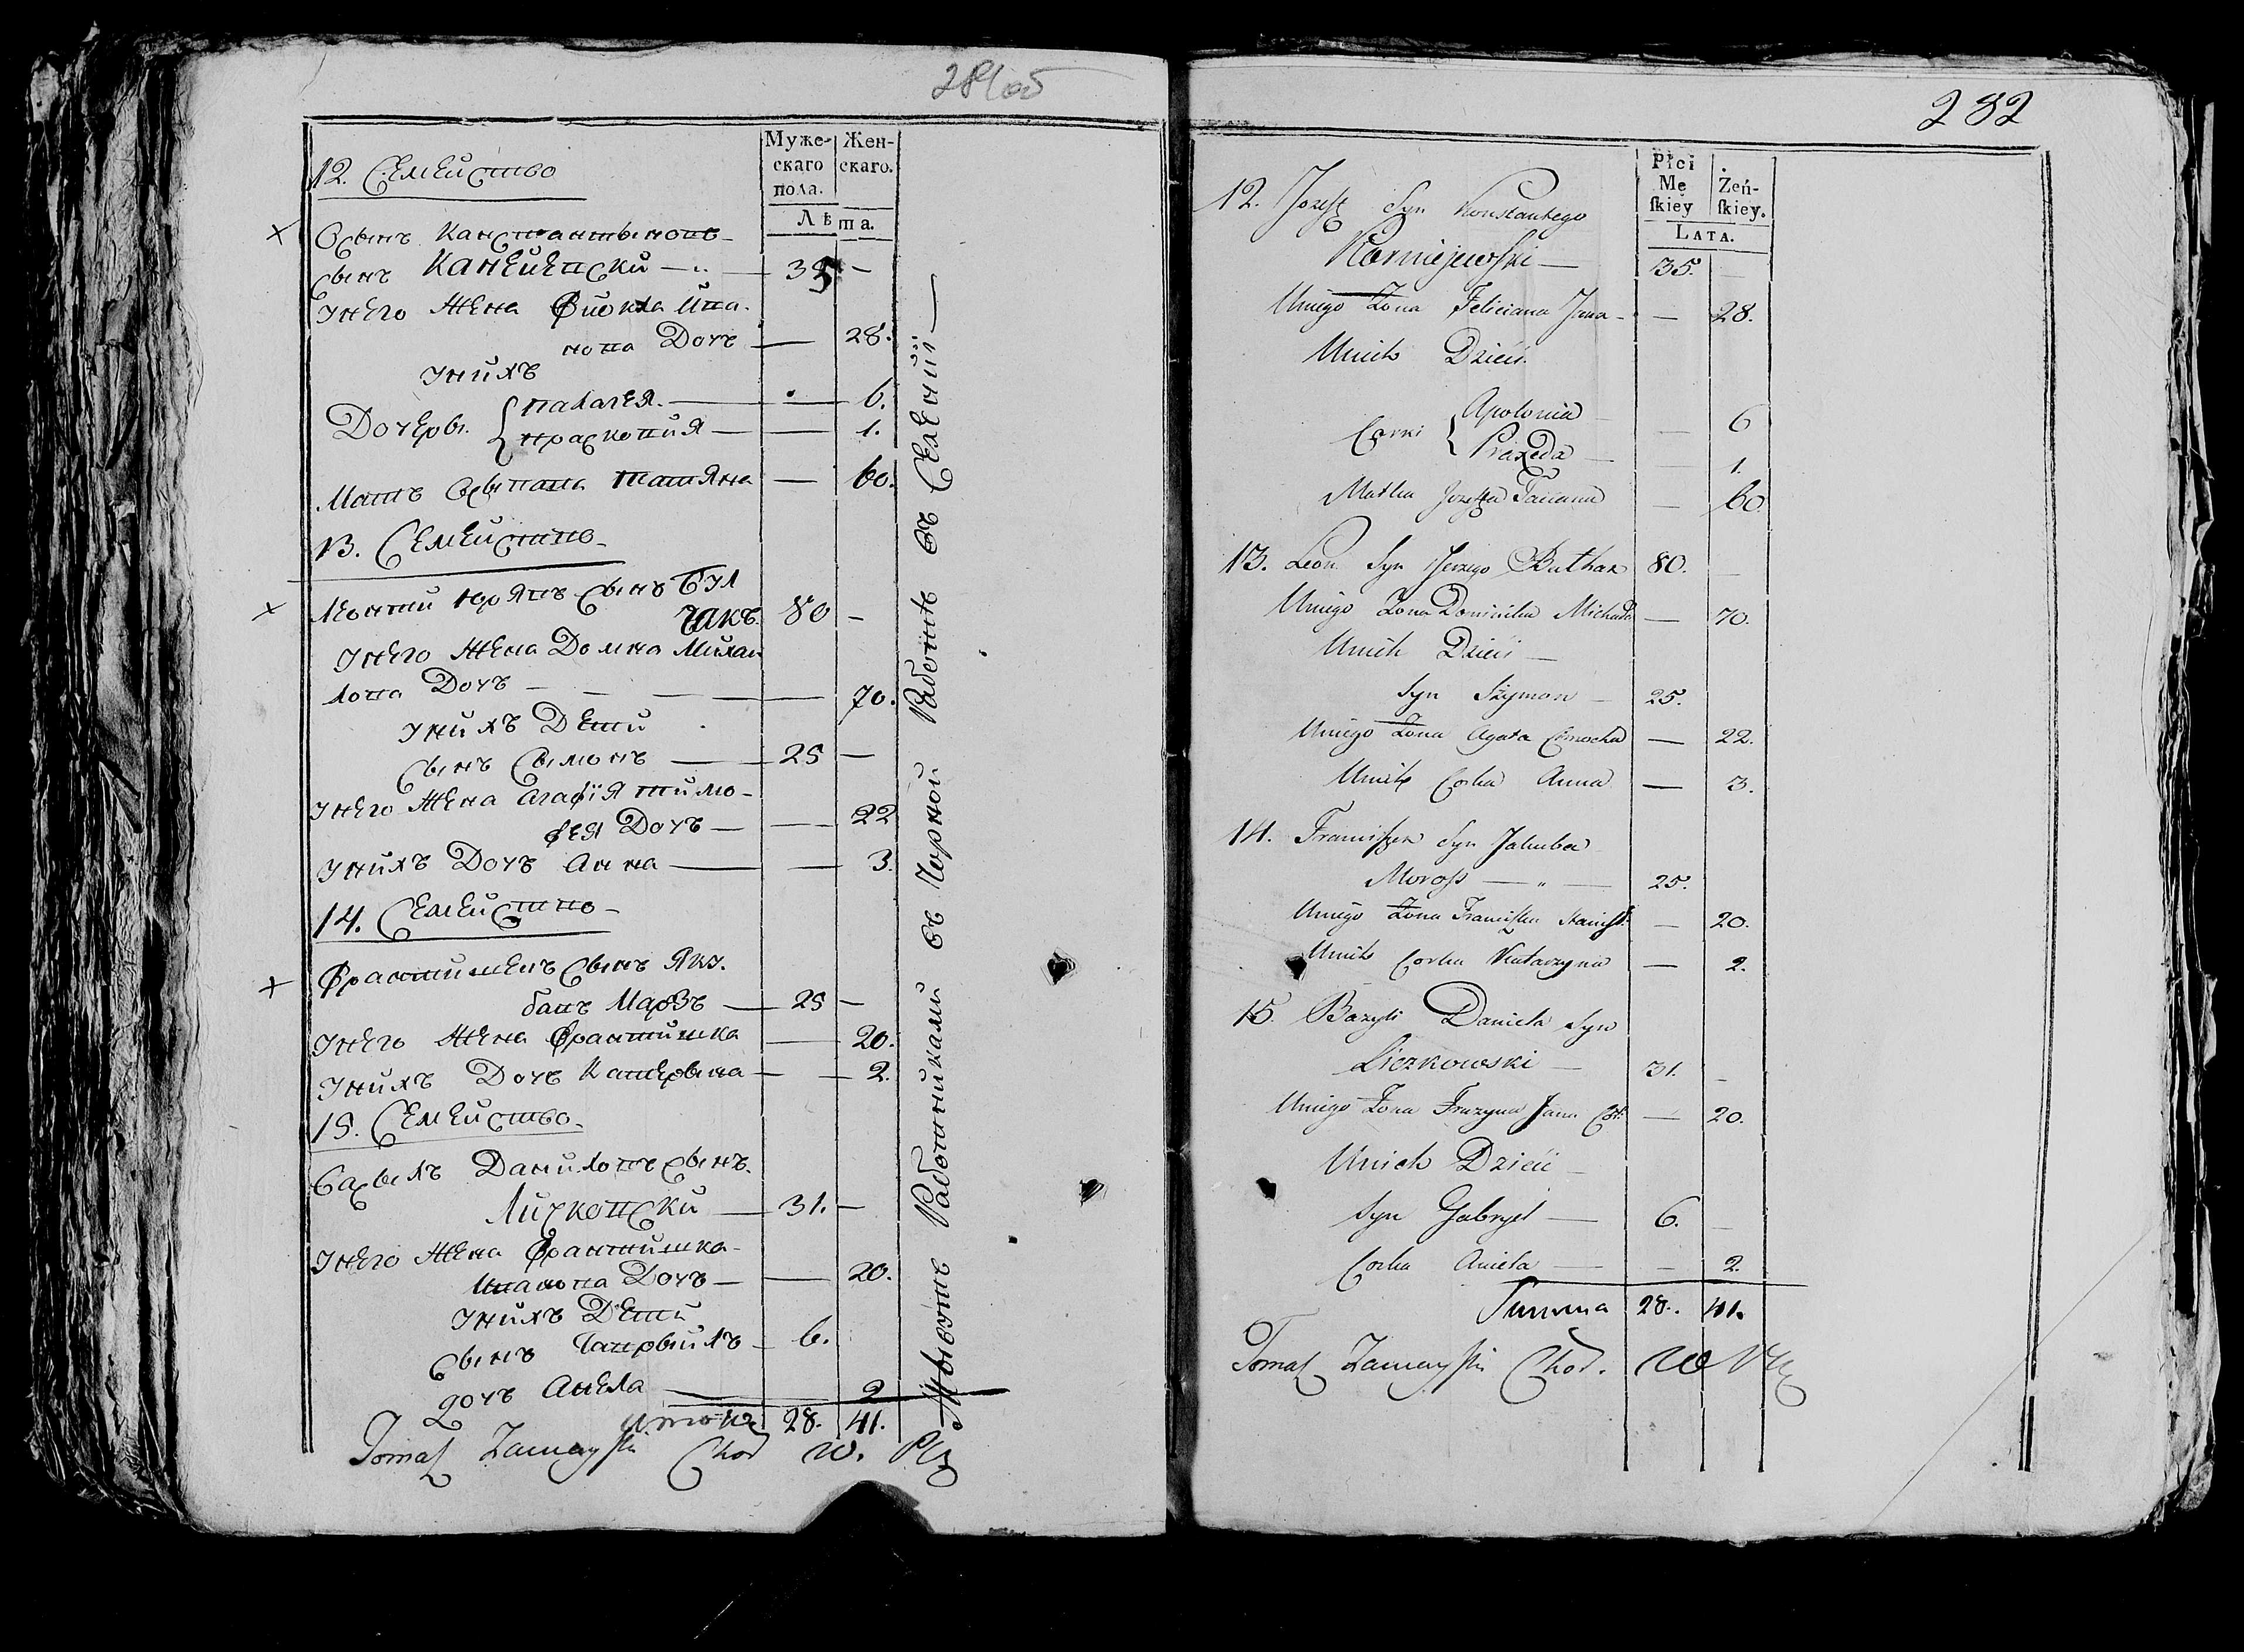 281об
Муже-
скаго
пола.
Жен-
скаго.
Лѣта.
12. Семейство
Осыпъ Канстантыновъ
сынъ Канеиевски — 35 —
Унего Жена Фиокла Ива-
нова Дочъ — 28.
Унихъ
Дочеры. { палагея. — 6.
праскопия — 1.
Мать Осыпова татяна — 60.
13. Семейство
Леонти юрявъ сынъ Бул
чакъ. 80 —
Унего Жена Домна Михаи
лова Дочъ — 70.
Унихъ Дети
сынъ сымонъ — 25 —
Унего Жена Агафія тимо-
фея Дочъ — 22
Унихъ Дочъ Анна — 3.
14. Семейство
Франтишекъ сынъ Яку-
бавъ Марозъ — 25 —
Унего Жена Франтишка — 20.
Унихъ Дочъ Катерына — 2.
15. Семейство
Васыль Даниловъ сынъ
Личковски — 31. —
Унего Жена Франтишка
Иванова Дочъ — 20.
Унихъ Дети
сынъ Гапрыилъ — 6.
дочъ Анела — 2
Итого 28. 41.
Tomasz Zamayski Chor. W. Ptu
Живутъ Работниками въ Чорной Работѣ въ Селеніи —
282
Płci
Mę
skiey
Żeń-
skiey.
LATA.
12. Jozef Syn Konstantego
Korniejewski — 35. —
Uniego Zona Feliciana Jana — 28.
Unich Dzieci
Corki { Apolonia — 6
Praxeda — 1.
Matka Jozefa Taciana — 60.
13. Leon Syn Jerzego Buthak 80. —
Uniego Zona Dominika Michała — 70.
Unich Dzieci —
Syn Szymon — 25.
Uniego Zona Agata Cimocha — 22.
Unich Corka Anna — 3.
14. Franciszek Syn Jakuba
Moross — „ — 25.
Uniego Zona Franciszka Stanisł. — 20.
Unich Corka Katarzyna — 2.
15. Bazyli Daniela Syn
Liczkowski — 31. —
Uniego Zona Fruzyna Jana Cor. — 20.
Unich Dzieci —
Syn Gabryel — 6. —
Corka Aniela — 2.
Summa 28. 41.
Tomasz Zamayski Chor. W Ptu